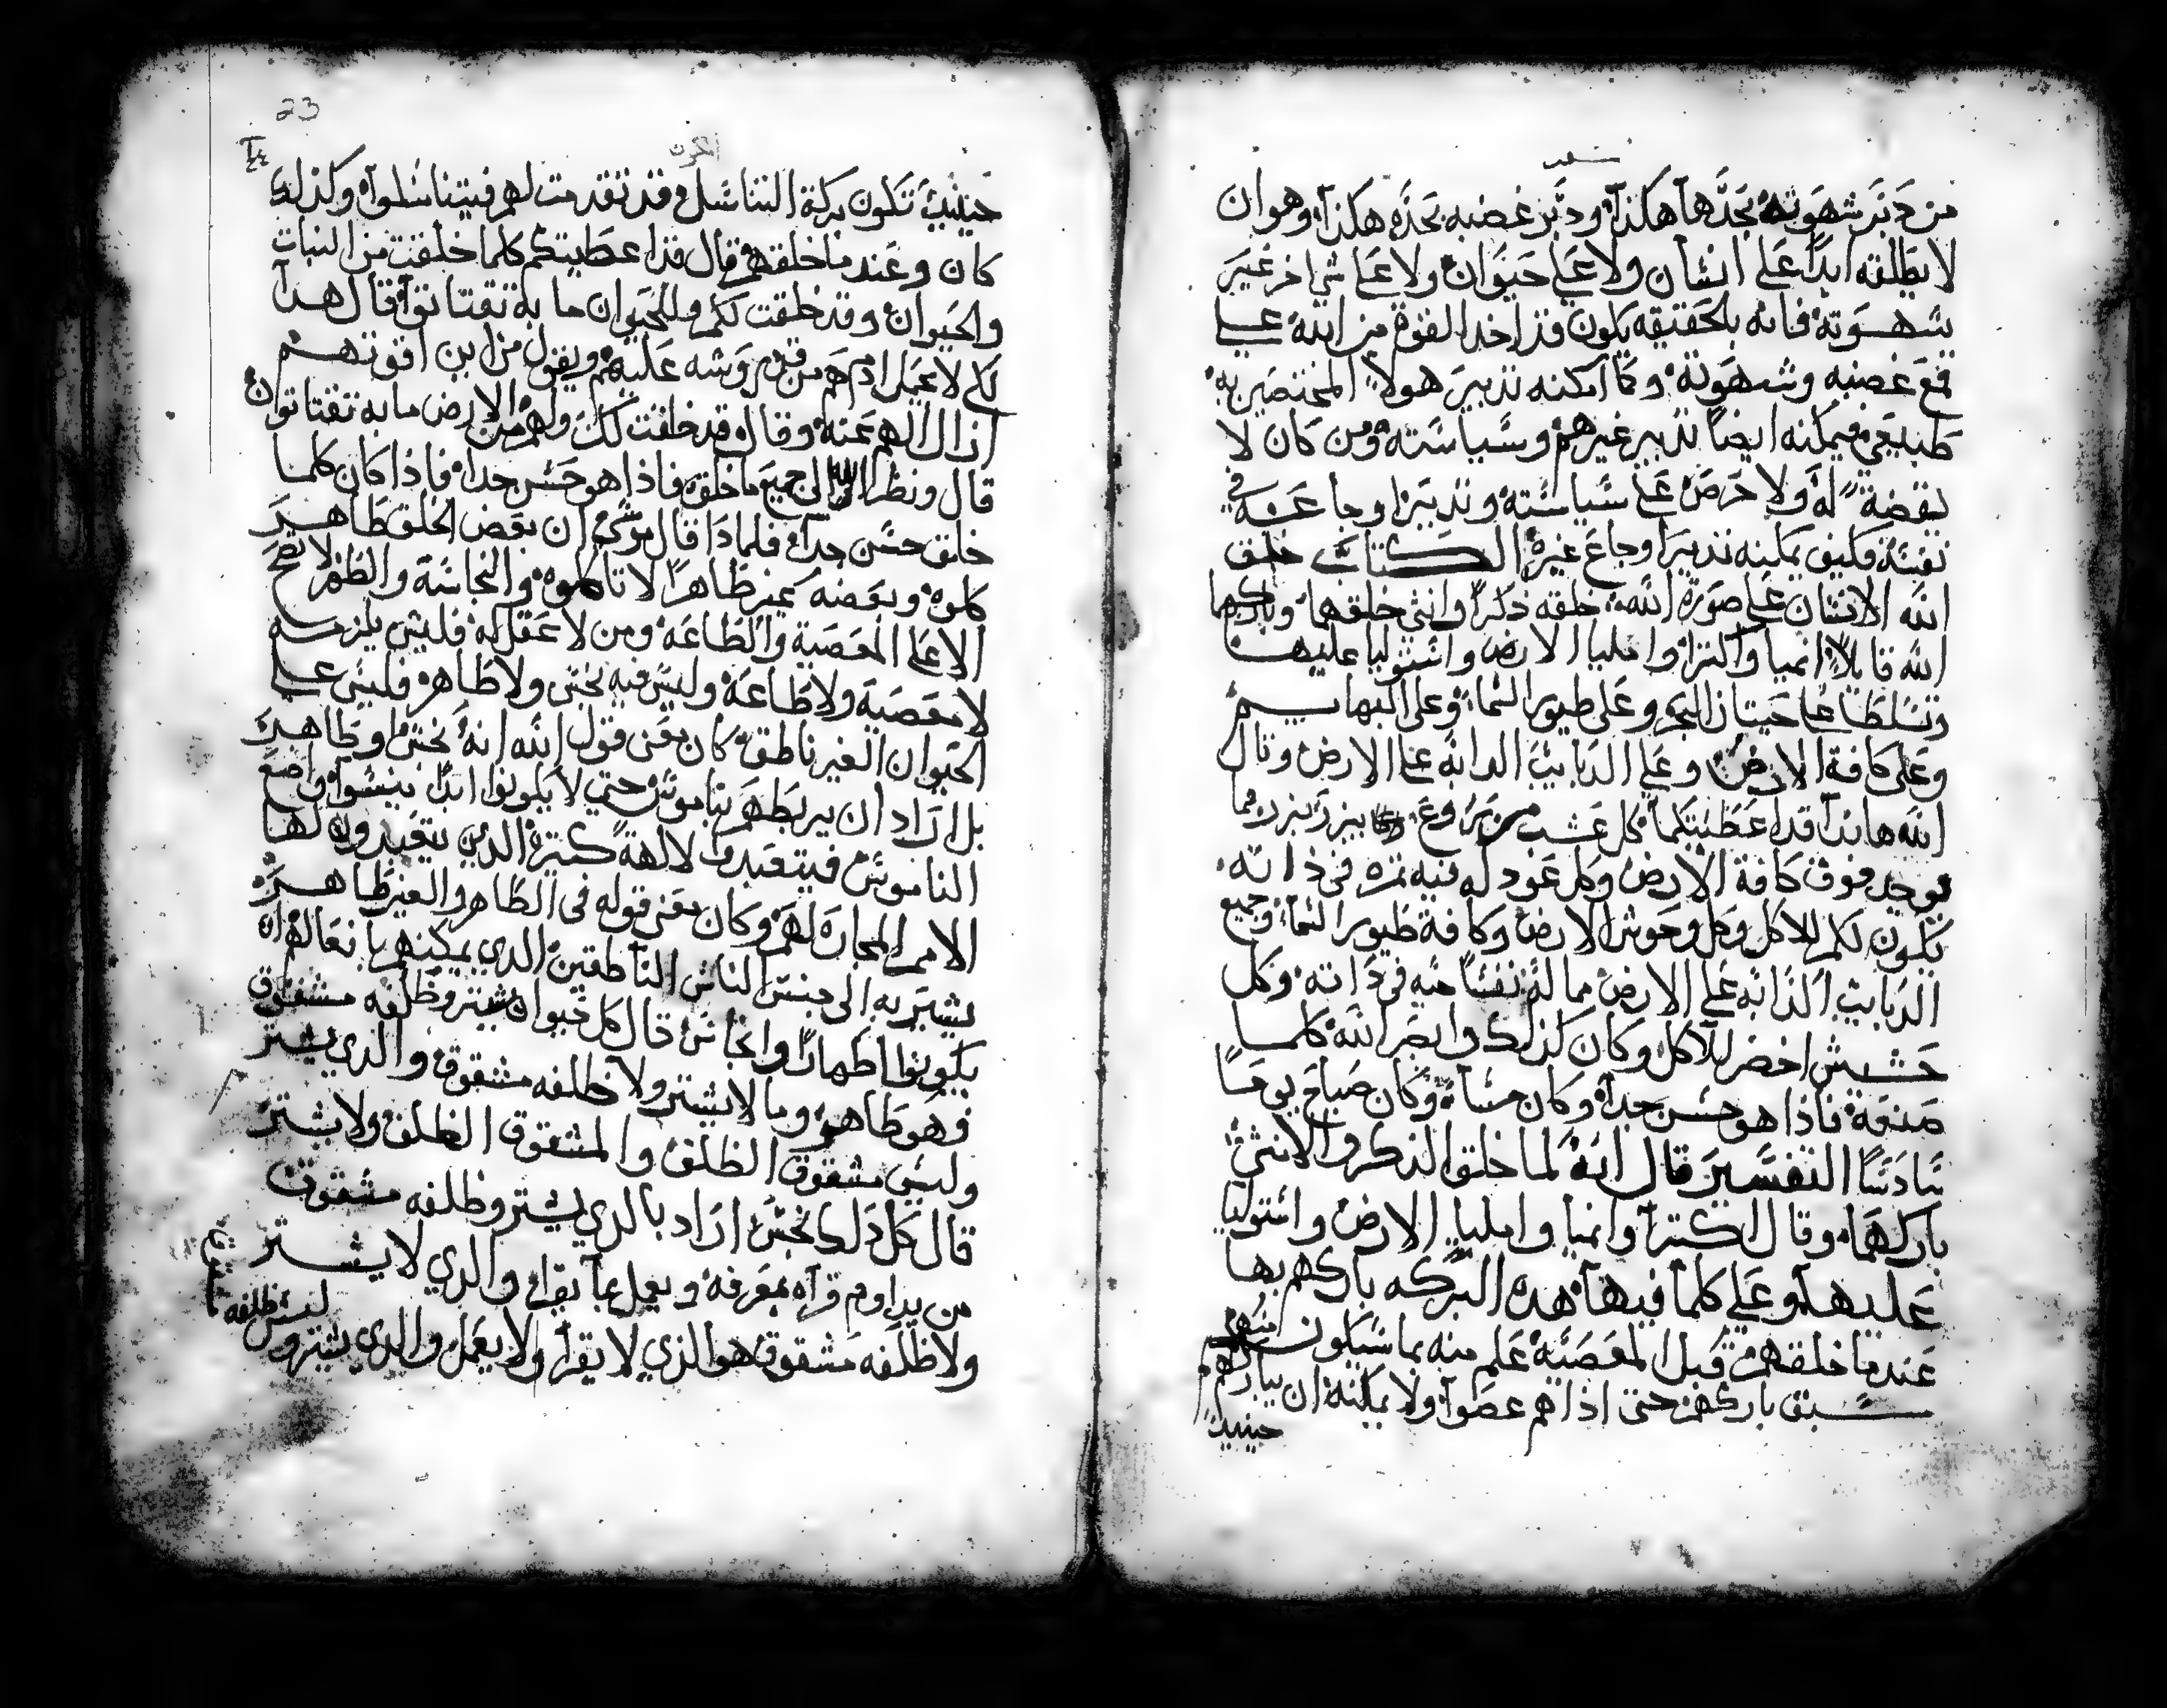 من دَبَر شهوته بحَدَّها هكذا ودبَّر غضبه بحَدَّه هكذا وهوان
لا يطلقه ابدًا على انسان ولا على حيوان ولا على شي اخر غير
شهوته فانه بالحقيقه يكون قد اخد القوة من الله على
قمع غضبه وشهوته وكما امكنه تدبير هولا المختصين به
طبيعي فيمكنه ايضا تدبير غيرهم وسياسته ومن كان لا
نهضة له ولا حرص على سياسته وتدبير اوجاعه في
نفسه فكيف يمكنه تدبير اوجاع غيره الكتاب خلق
الله الانسان على صورة الله خلقه ذكرا وانثى خلقهما وباركهما
الله قايلا انميا واكثرا واملیا الارض واستوليا عليها
وتسلطا على حيتان البحر وعلى طيور السما وعلى البهايم
وعلى كافة الارض وعلى الدبابيب الدابه على الارض وقال
الله هاندا قد اعطيتكما كل عشب يبزر بزر مما
يوجد فوق كافة الارض وكل عود له فيه ثمره في ذاته
تكون لكم للاكل وكل وحوش الارض وكافة طيور السما وجميع
الدبابيب الدابه على الارض مما له نفسًا حيه في ذاته وكل
حشيش اخضر للاكل وكان كذلك وابصر الله كلما
صنعه فاذا هو حسن جدا وكان مساءً وكان صباح يومًا
سادسًا التفسير قال انه لما خلق الذكر والانثى
باركهما وقال اكثرا وانميا واملیا الارض واستوليا
عليها وعلى كلما فيها هده البركه باركهم بها
عندما خلقهم قبل المعصيه علم منه بما سيكون منهم
سبق باركهم حتى اذا هم عصوا ولا يمكنه ان يباركهم
حينيدٍ
23
حينيدٍ تكون بركة التناسل قد تقدمت لهم فيتناسلوا وكذلك
كان وعند ما خلقهم قال قد اعطيتكم كلما خلقت من النبات
والحيوان وقد خلقت لكم وللحيوان ما به تقتاتوا قال هدا
لكي لا يحمل ادم هم من قدم روسه عليهم ويقول من اين اقوتهم
ازال الهم عنه وقال قد خلقت لك ولهم من الارض ما به تقتاتون
قال ونظر الله الى جميع ما خلقه فاذا هو حسن جدا فاذا كان كلما
خلق حسن جدا فلماذا قال موسى ان بعض الخلق طاهر
كلوه وبعضه غير طاهرًا لا تاكلوه والنجاسة والطهر لا تصح
الا على المعصية والطاعه ومن لا عقل له فليس يلزمه
لا معصية ولا طاعه وليس فيه نجس ولا طاهر فليس على
الحيوان الغير ناطق كان يعنى قول الله انه نجس او طاهر
بل اراد ان يربطهم بناموس حتى لا يكونوا ابدا ينسوا واضع
الناموس فيتعبدوا لالهة كتيرة الدين يتعبدون لها
الامم المجاره لهم وكان يعنى قوله في الطاهر والغير طاهر
يشير به الى جنس الناس الناطقين الدي يمكنهم بافعالهم ان
يكونوا اطهارًا وانجاس قال كل حيوان يشتر وظلفه مشقوق
فهو طاهر وما لا يشتر ولا ظلفه مشقوق والدي يشتر
وليس مشقوق الظلف والمشقوق الظلف ولا يشتر
قال كل دلك نجس اراد بالدي يشتر وظلفه مشقوق
من يداوم قراه بمعرفه ويعمل بما يقرا والدي لا يشتر
ولا ظلفه مشقوق هو الذي لا يقرا ولا يعمل والدي يشتر و
ليس ظلفه